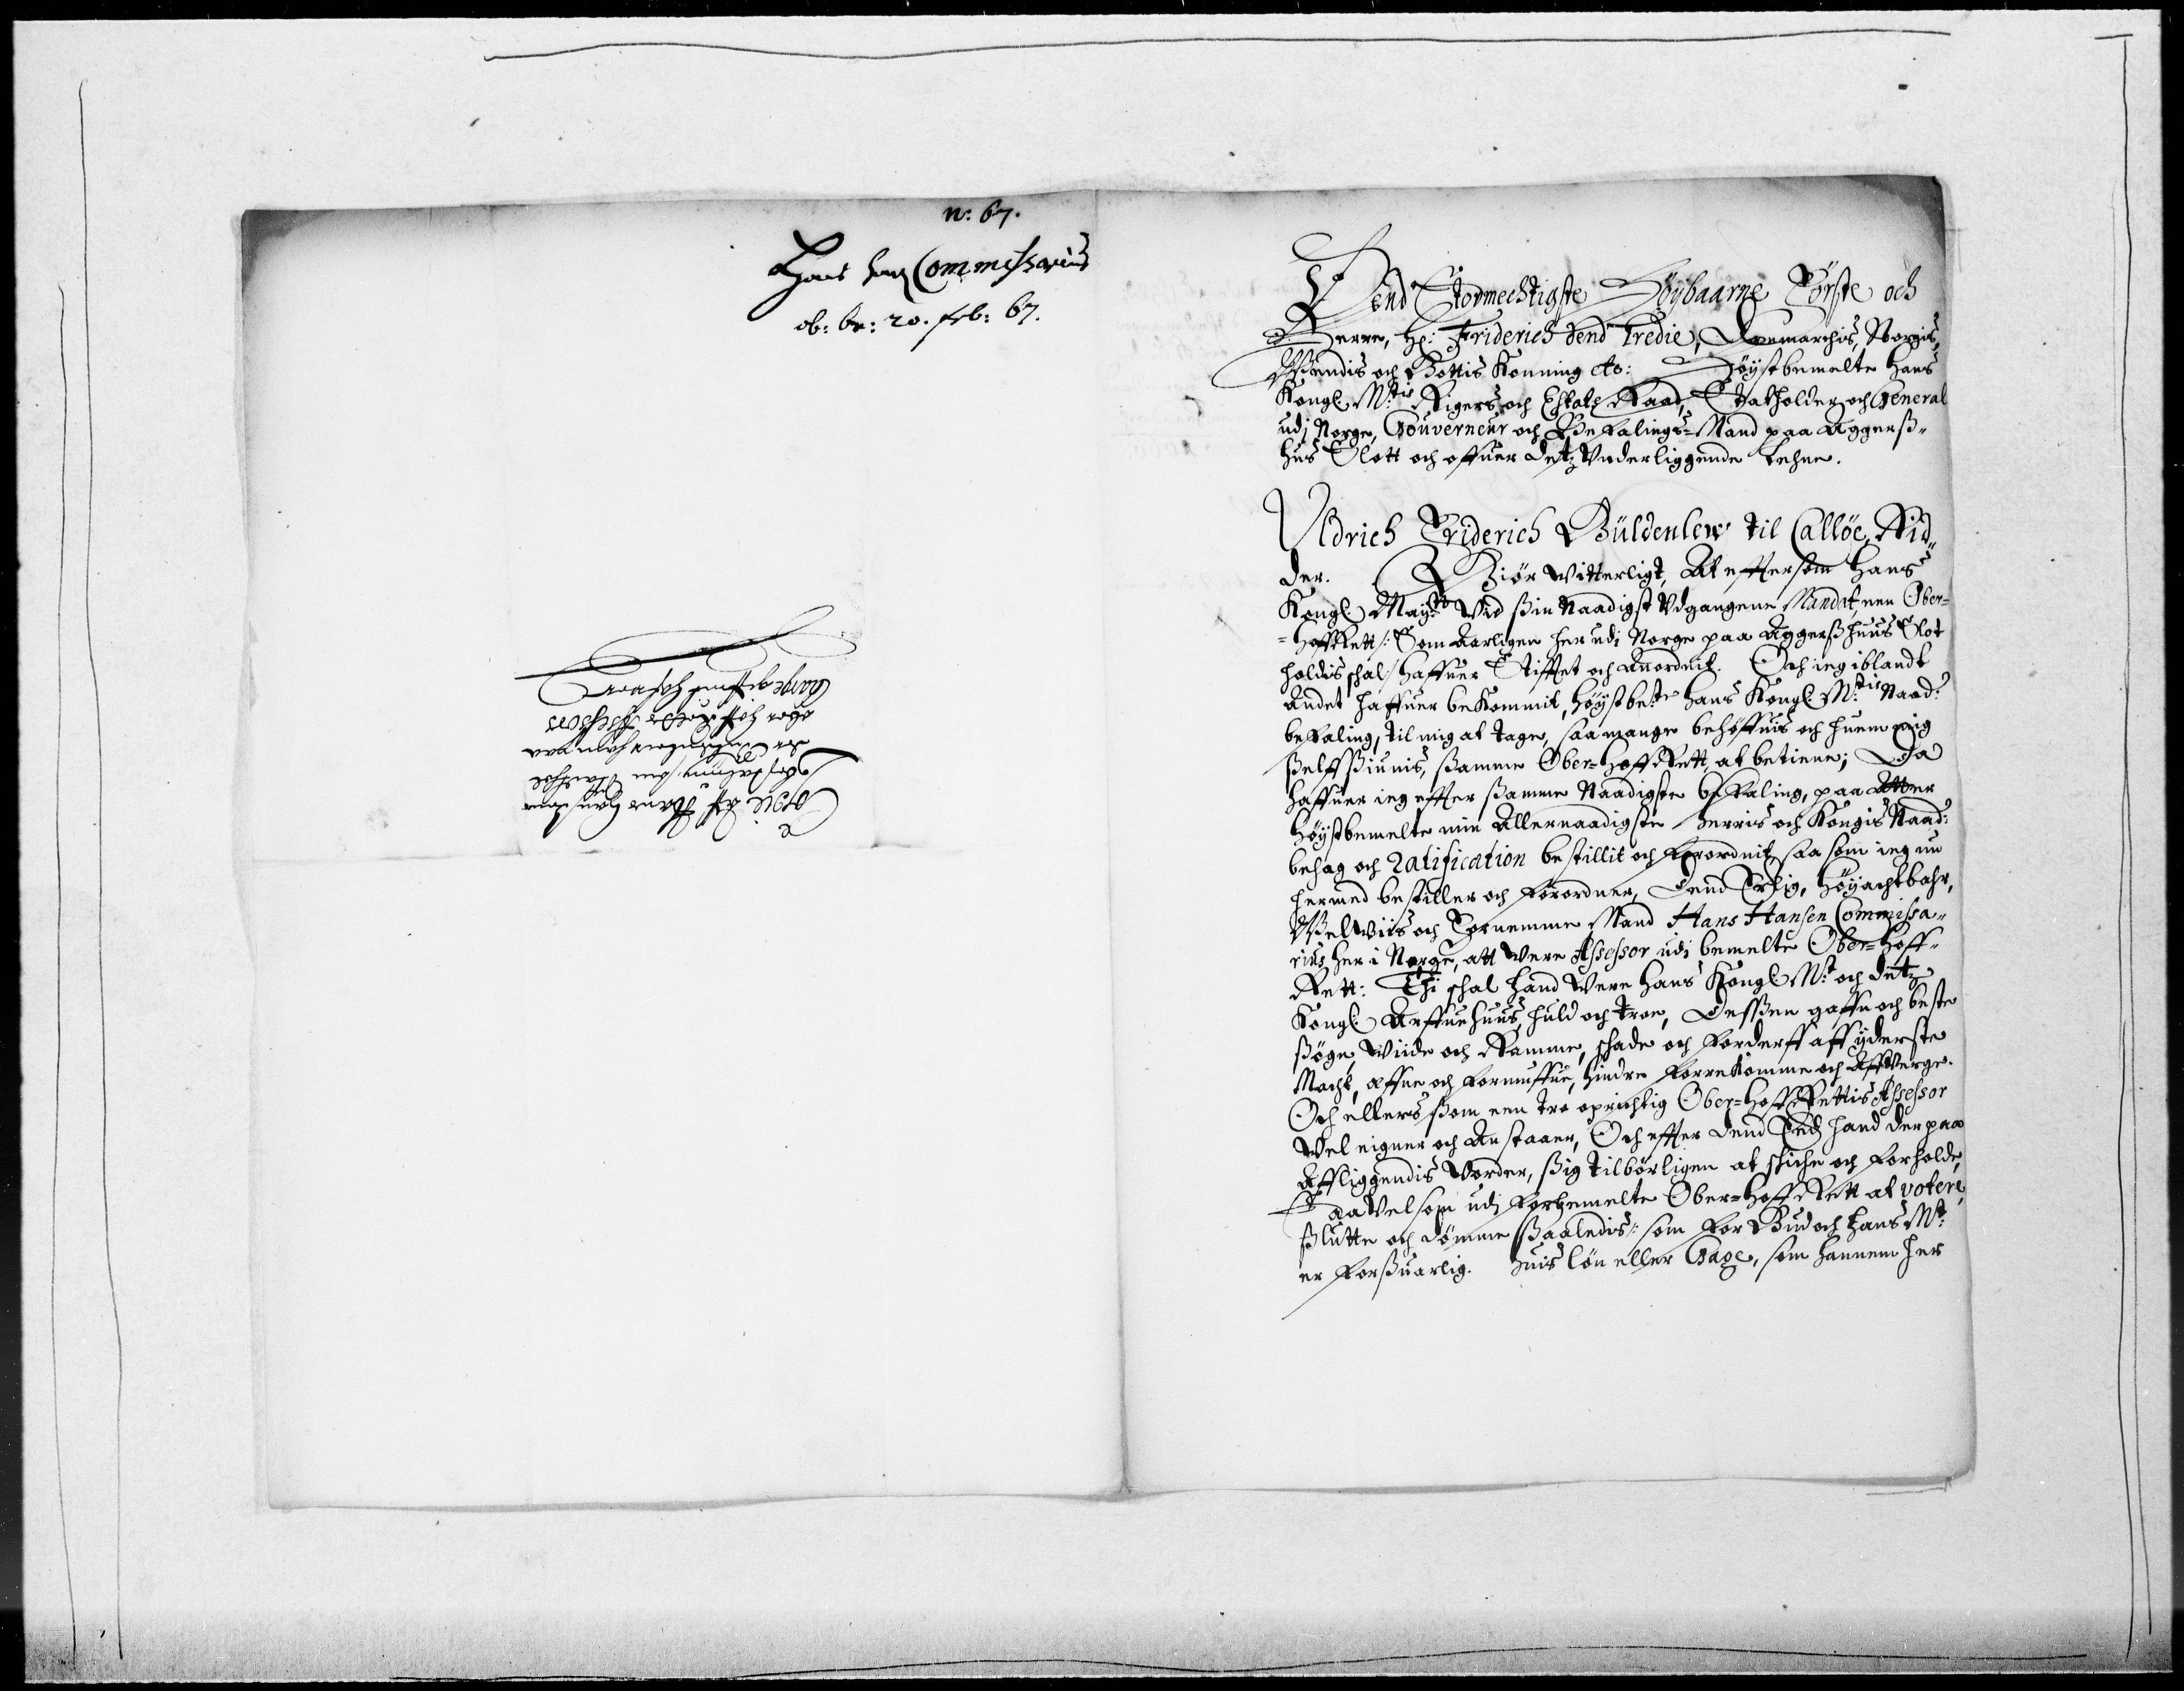 n: 67.
Hans Hanß Commissarius
ob: br: 20. feb: 67.
Dend Stormechtigste Höybaarne Förste och
Herre, H: Friderich dend Tredie, Danmarchis, Norgis,
Wendis och Gottis Konning etc: Höystbemelte Hans
Kongl: M:tis Rigers och Estats Raad, Statholder och General
udj Norge, Gouverneur och Befalings-Mand paa Aggerß-
huß Slott och offuer detz Vnderliggende Lehne.
Vldrich Friderich Güldenlew til Callöe, Rid-
der. Giör Witterligt, At effter som Hans
Kongl: May:tt Wed ßin Naadigst Vdgangene Mandat, een Ober-
-Hoff Rett /: Som Aarligen her udi Norge paa Aggerßhuus Slot
holdis schal :/ haffuer Stifftet och Anordnit. Och ieg iblandt
Andet haffuer beKommit, höystbe:te Hans Kongl: M:tis Naad:
befaling, til mig at tage, saa mange behöffuis och huem mig
ßelff ßiunis, ßamme Ober-Hoff Rett, at betiene; Da
haffuer ieg effter ßamme Naadigste befaling, paa
Höystbemelte min Allernaadigste Herris och Kongis Naad:
behag och Ratification bestillit och Forordnit, saa som ieg nu
hermed bestiller och Forordner, Dend Erlig, Höyachtbahr,
Welwiis och Fornemme Mand Hans Hansen Commissa-
rius her i Norge, att Were Assessor udi bemelte Ober-Hoff-
Rett: Thi schal hand Were Hans Kongl: M:t och detz
Kongl: Arffuehuus, huld och troe, Desßen gaffn och beste
ßöge, Wiide och Ramme, schade och Forderff aff yderste
Macht, æffne och Formuffue, hindre ForreKomme och AffVerge.
Och ellers ßom een tro oprichtig Ober-Hoff Rettis Assessor
Wel eigner och Anstaaer, Och effter dend Eed hand der paa
Affliggendis Vorder, ßig tilbörligen at schiche och Forholde,
Saavelsom udj Forbemelte Ober-Hoff Rett at votere,
ßlutte och dömme ßaaledis /: som For Gud och Hans M:t
er Forßuarlig. Huis lön eller Gage, som hannem her